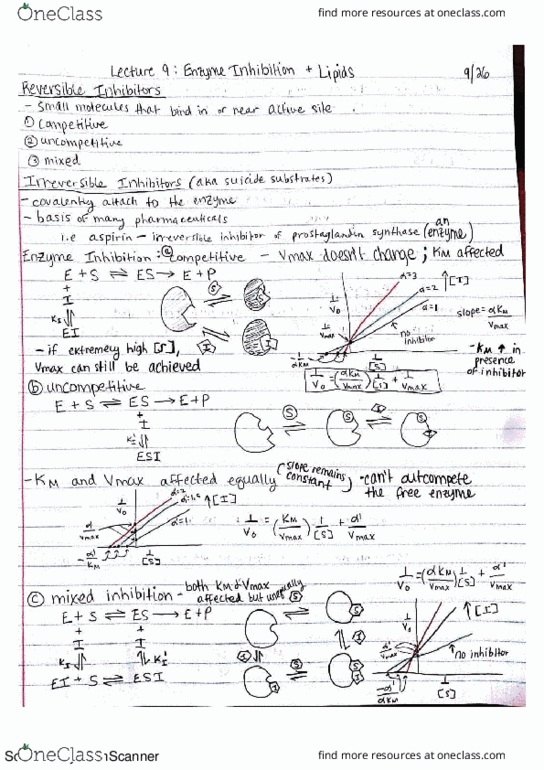 OneClass
find more resources at oneclass.com
Lecture 9: Enzyme Inhibition + Lipids 9/26
Reversible Inhibitors
- Small molecules that bind in or near active site
① Competitive
② uncompetitive
③ mixed
Irreversible Inhibitors (aka suicide substrates)
- covalently attach to the enzyme
- basis of many pharmaceuticals
i.e aspirin - irreversible inhibitor of prostaglandin synthase (an enzyme)
Enzyme Inhibition: ⓐ competitive - Vmax doesn't change; KM affected
E + S ⇌ ES → E + P
+
I
KI ⇅
EI
S
I
α=3
α=2
α=1
↑[I]
1/V0
1/Vmax
no inhibitor
slope = αKM/Vmax
-1/αKM
1/[S]
- if extremely high [S],
Vmax can still be achieved
1/V0 = (αKM/Vmax) 1/[S] + 1/Vmax
- KM ↑ in
presence
of inhibitor
ⓑ uncompetitive
E + S ⇌ ES → E + P
+
I
KI' ⇅
ESI
S
I
- KM and Vmax affected equally (slope remains constant) - can't outcompete
the free enzyme
1/V0
α=2
α=1
↑[I]
α'/Vmax
-α'/KM
1/[S]
1/V0 = (KM/Vmax) 1/[S] + α'/Vmax
ⓒ mixed inhibition - both KM & Vmax
affected but unequally
1/V0 = (αKM/Vmax) 1/[S] + α'/Vmax
E + S ⇌ ES → E + P
+ +
I I
KI ⇅ ⇅ KI'
EI + S ⇌ ESI
S
I
1/V0
↑[I]
α'/Vmax
no inhibitor
-α'/αKM
1/[S]
OneClass
Scanner
find more resources at oneclass.com